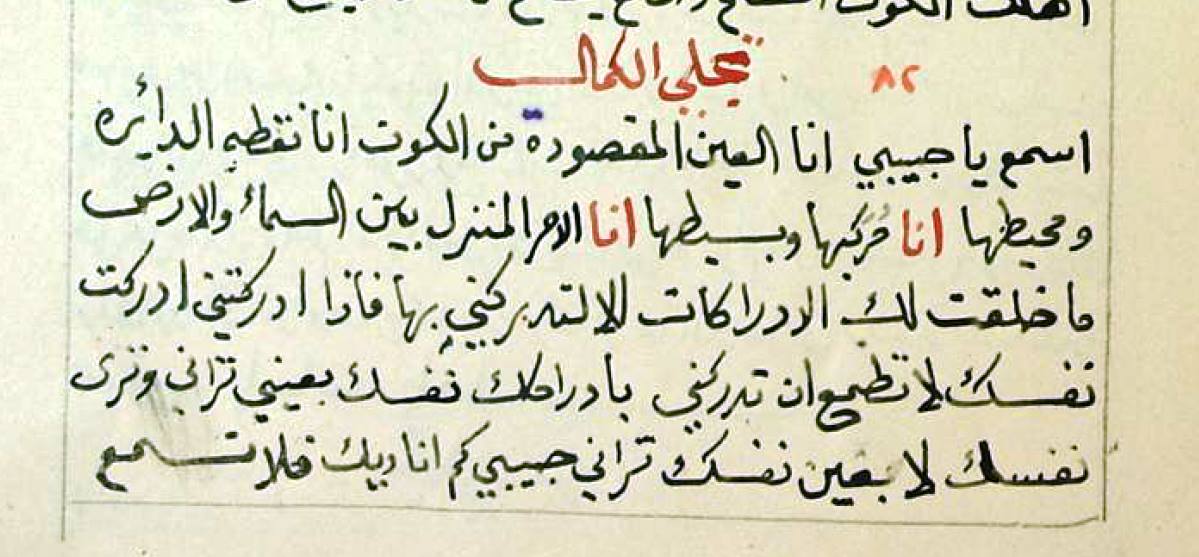 تجلي الكمال ٨٢
اسمع يا حبيبي انا العين المقصودة من الكون انا نقطه الدائره
ومحيطها انا مركبها وبسيطها انا الامر المنزل بين السماء والارض
ما خلقت لك الادراكات الا لتدركني بها فاذا ادركتني ادركت
نفسك لا تطمع ان تدركني بادراكك نفسك بعيني تراني وترى
نفسك لا بعين نفسك تراني حبيبي كم اناديك فلا تسمع